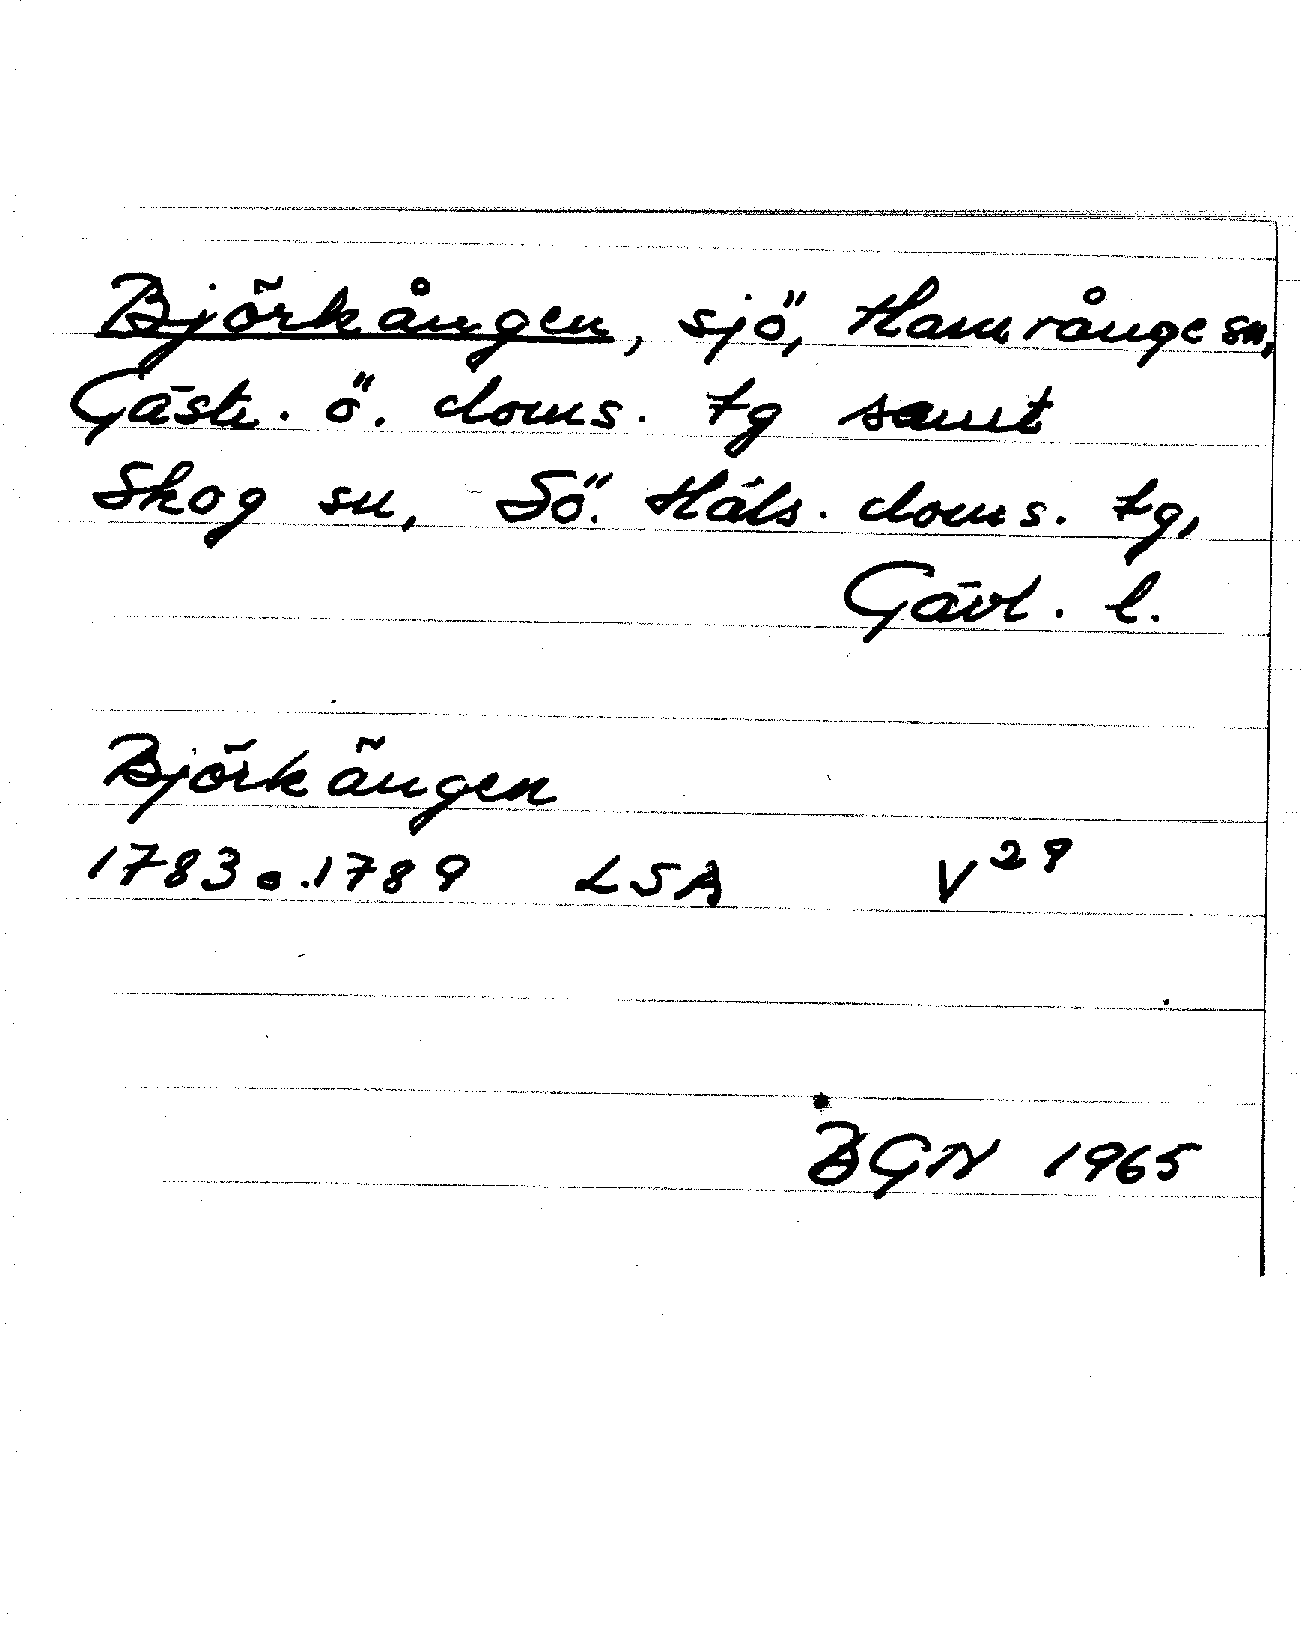 Björkången, sjö, Hamrånge sn,
Gästr. ö. doms. tg samt
Skog sn, Sö. Häls. doms. tg,
Gävl. l.
Björkängen
1783 o. 1789 LSA V²⁹
BGN 1965